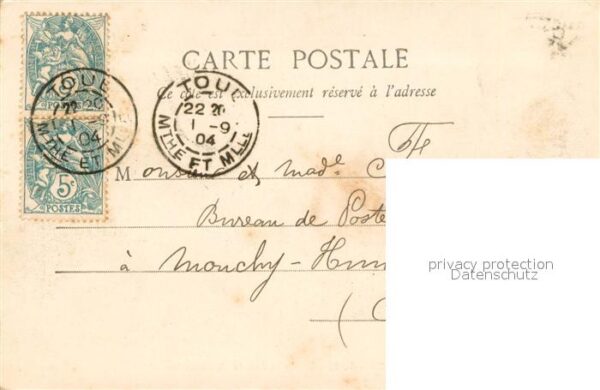 CARTE POSTALE
Ce côté est exclusivement réservé à l'adresse
TOUL
22 20
1 -9
04
MTHE ET MLLE
TOUL
22 20
04
MTHE ET M
POSTES
5c
POSTES
Monsieur et Made
Bureau de Poste
à Mouchy-Hum
(
privacy protection
Datenschutz